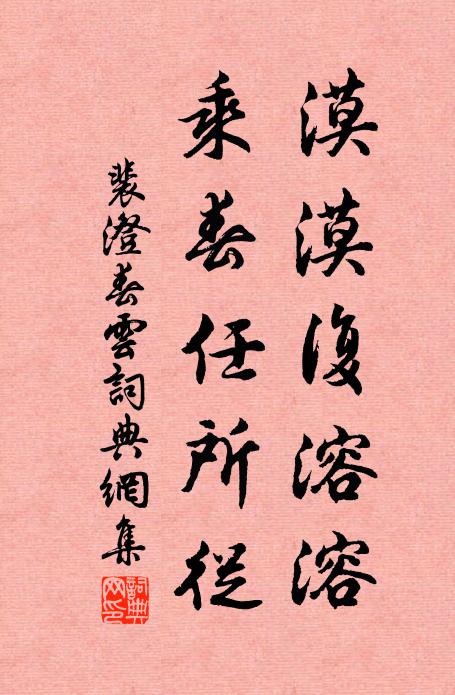 漠漠復溶溶
乘春任所從
裴澄春雲詞典網集
詞典網印